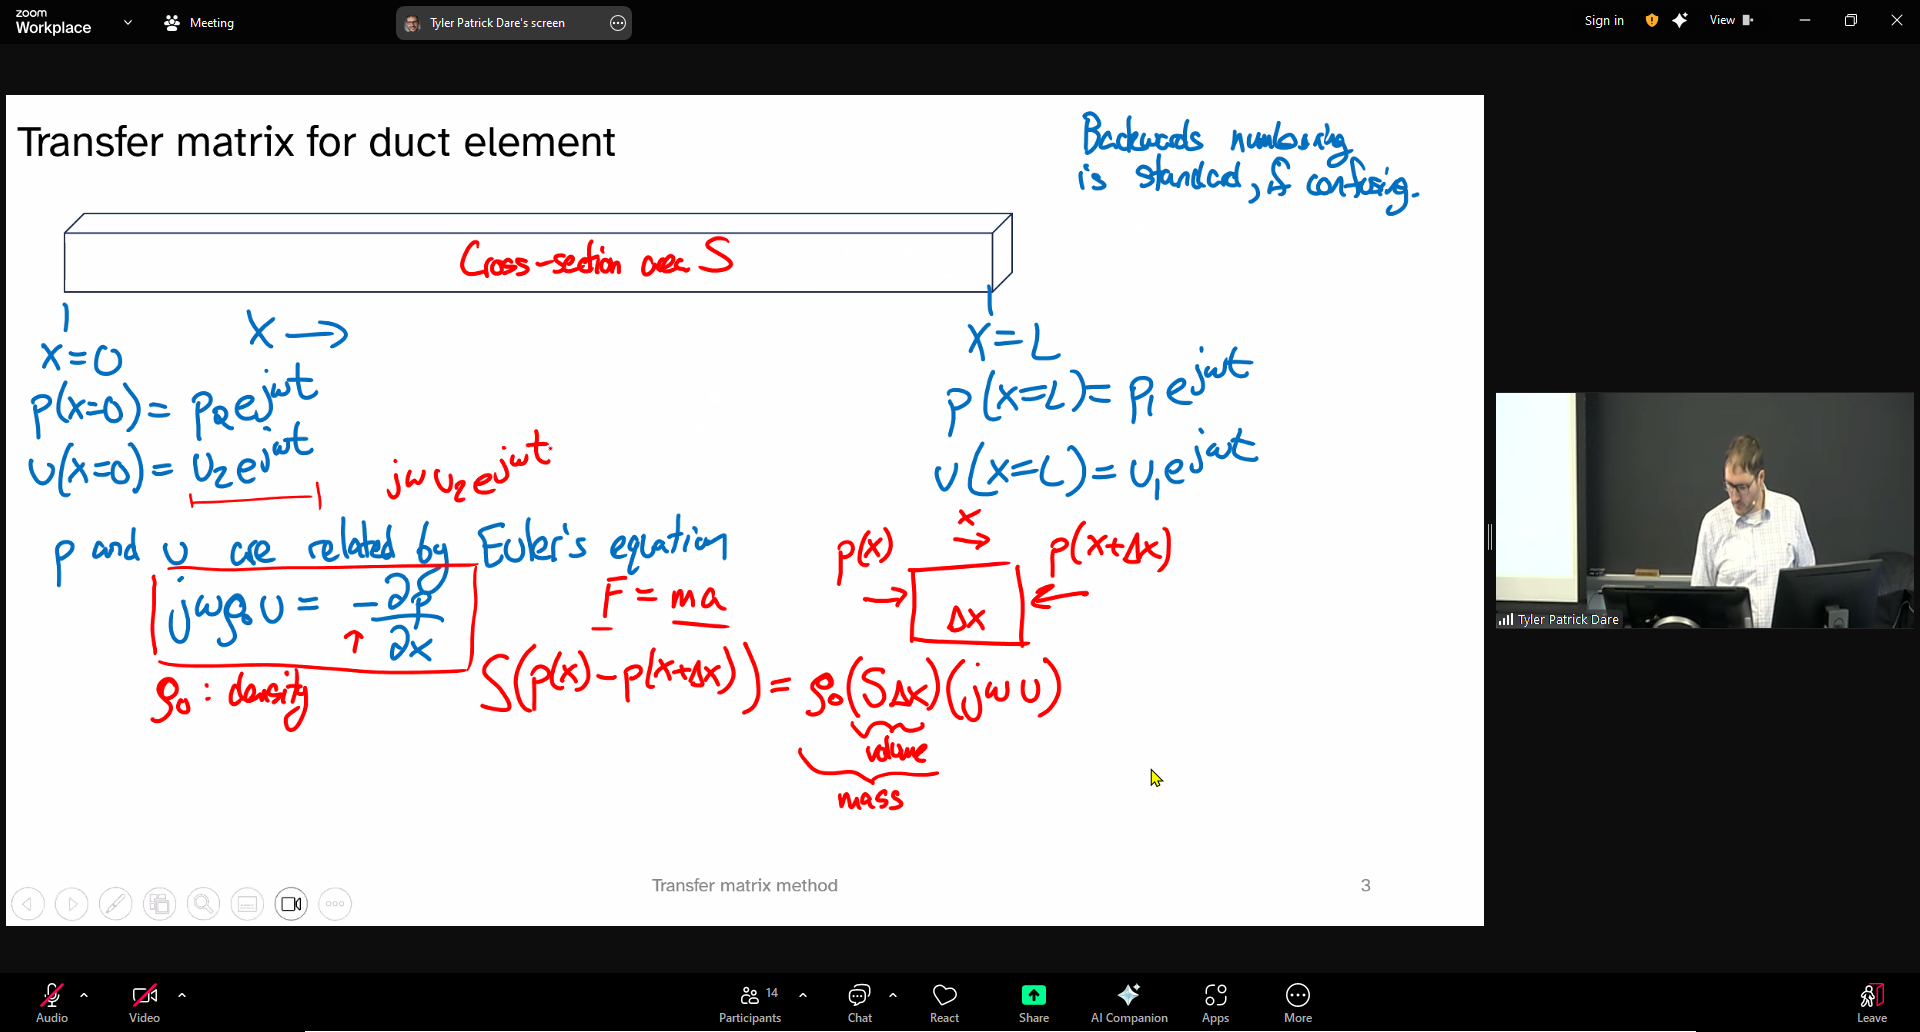 zoom
Workplace
Meeting
Tyler Patrick Dare's screen
Sign in
View
Transfer matrix for duct element
Backwards numbering
is standard, if confusing.
Cross-section area S
x=0
x →
x=L
p(x=0)= p₂e^{jωt}
p(x=L)= p₁e^{jωt}
u(x=0)= u₂e^{jωt}
jωu₂e^{jωt}
u(x=L)= u₁e^{jωt}
p and u are related by Euler's equation
jωρ₀u = -∂p/∂x
↑
F = ma
p(x)
x
→
p(x+Δx)
→
←
Δx
ρ₀ : density
S(p(x)-p(x+Δx)) = ρ₀(SΔx)(jωu)
volume
mass
Transfer matrix method
3
Tyler Patrick Dare
Audio
Video
Participants
14
Chat
React
Share
AI Companion
Apps
More
Leave